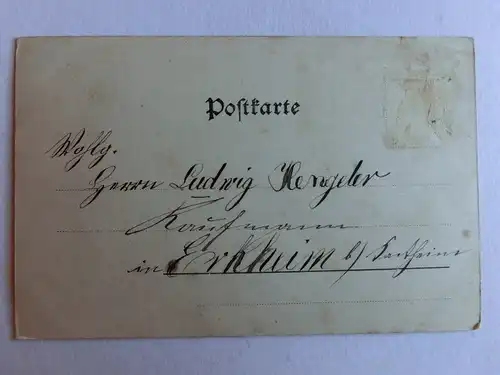 Postkarte
Wohlg.
Herrn Ludwig Hengeler
Kaufmann
in Erkheim b/